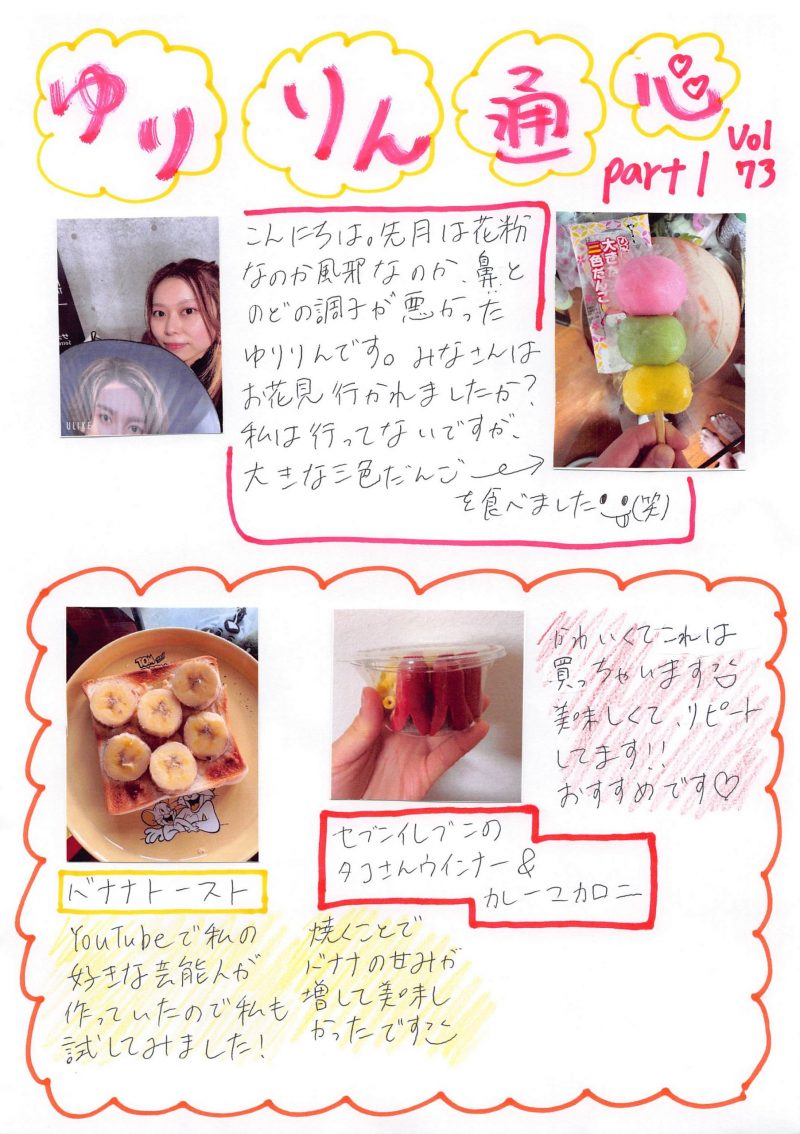 ゆりりん通心
part1
Vol
73
こんにちは。先月は花粉
なのか風邪なのか、鼻と
のどの調子が悪かった
ゆりりんです。みなさんは
お花見行かれましたか?
私は行ってないですが、
大きな三色だんご→
を食べました(笑)
ULIKE
大きな
三色だんご
かわいくてこれは
買っちゃいます
美味しくて、リピート
してます!!
おすすめです♡
TOM
セブンイレブンの
タコさんウインナー&
カレーマカロニ
バナナトースト
YouTubeで私の
好きな芸能人が
作っていたので私も
試してみました!
焼くことで
バナナの甘みが
増して美味し
かったです